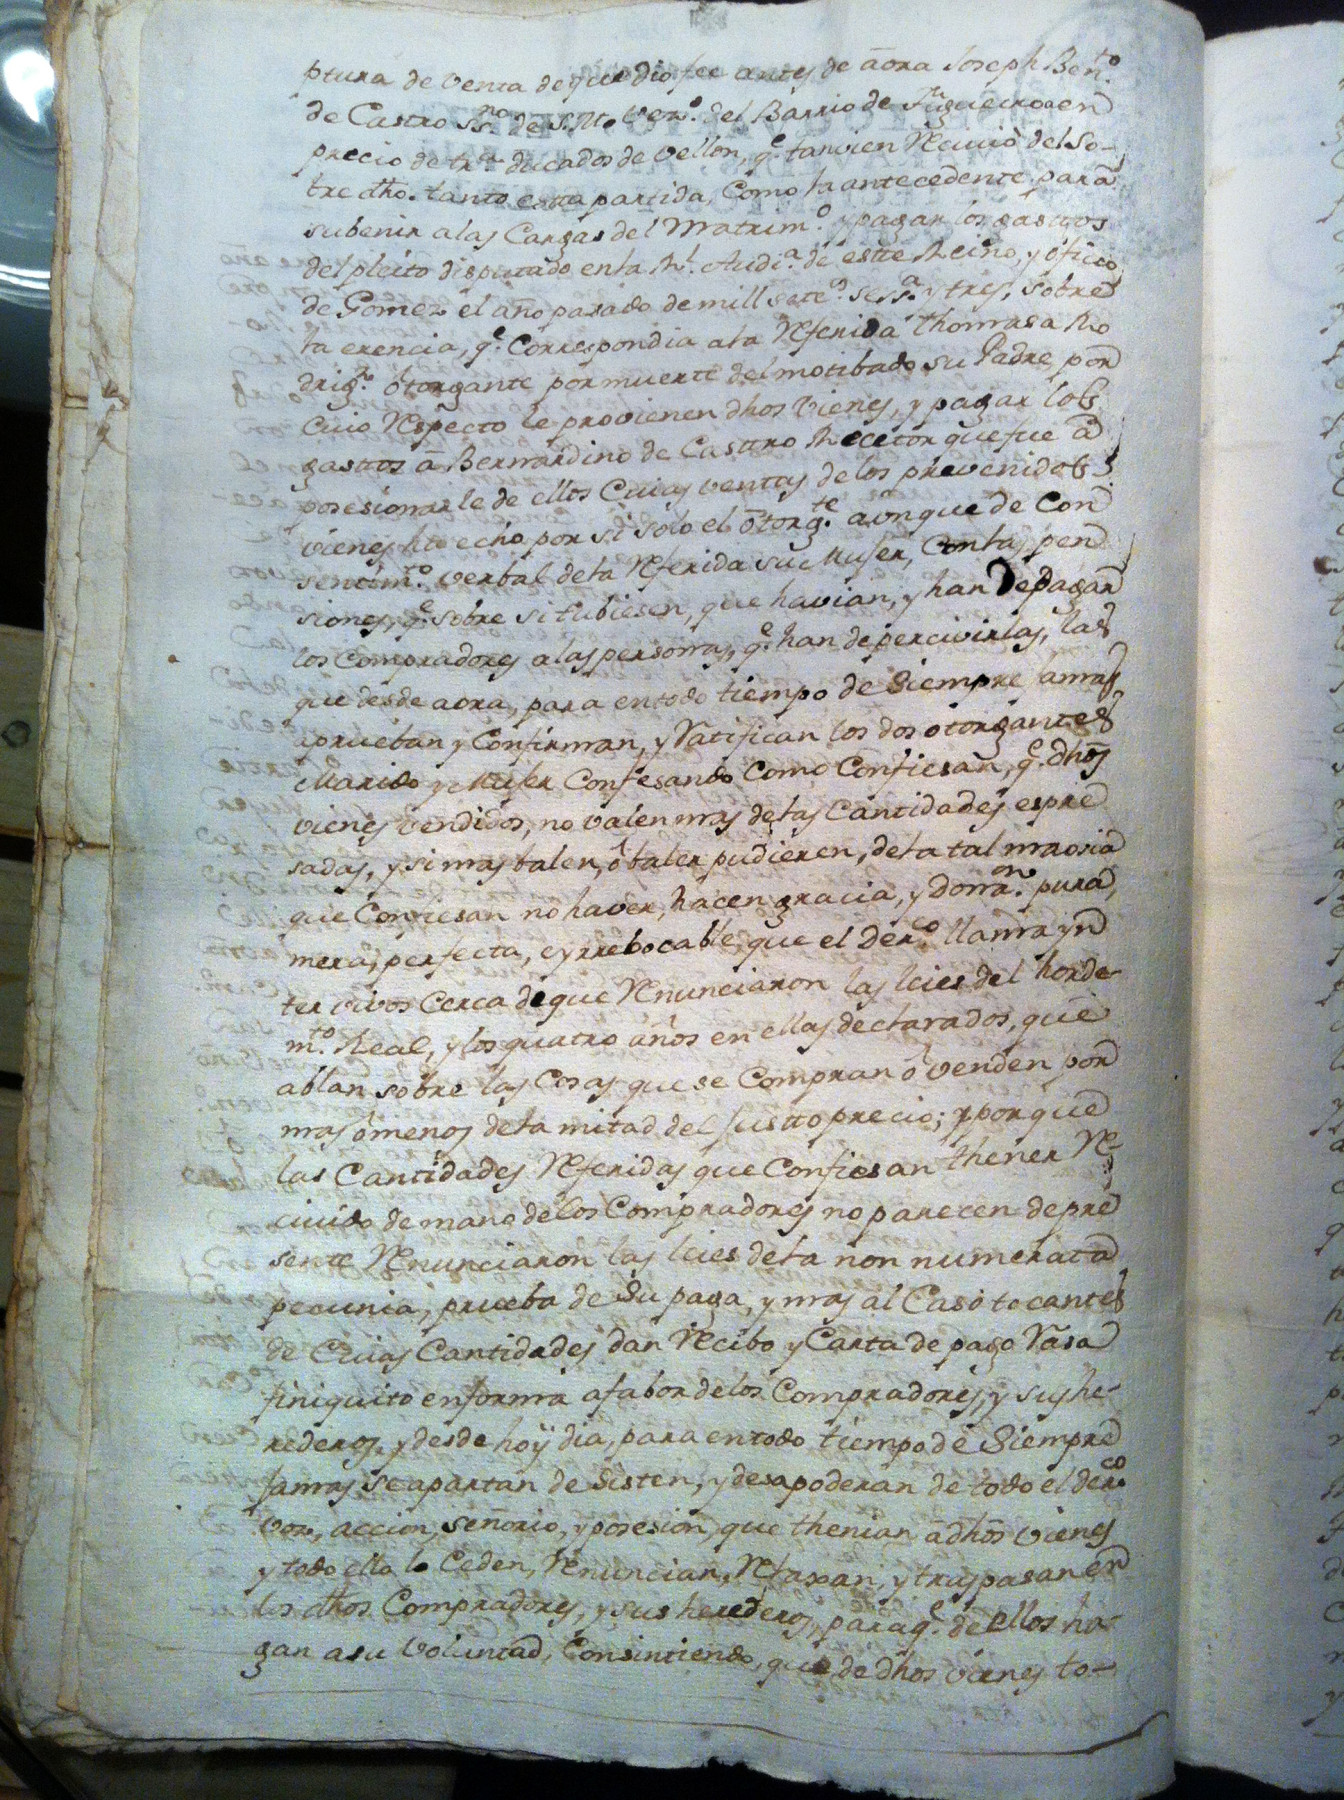 ptura de venta de que dio fee antes de aõra Joseph Ben.to
de Castro ss.no de S. M. vez.o del Barrio de Figueiroa en
precio de tr.ta ducados de vellon, q.e tanvien Reciviò del So-
bre dho. tanto esta partida, Como la antecedente para
subenir a las Cargas del Matrim.o y pagar los gasttos
del pleito disputado en la Rl. Audi.a de estte Reino, y ôficio
de Gomez el año pasado de mill sette.s sess.ta y tres, sobre
la erencia, q.e Correspondia a la Referida thomasa Ro
drig.z ôtorgante por muerte del motibado su Padre, por
Cuio Respecto le provienen dhos vienes, y pagar los
gasttos â Bernardino de Casttro Recetor que fue â
posesionarle de ellos Cuias ventas de los prevenidos
vienes hto echo por si solo el ôtorg.te aunque de Con
sentim.to verbal de la Referida su Muger, Con las pen
siones, q.e sobre si tubiesen, que havian, y han De pagar
los Compradores a las personas, q.e han de percivirlas, las
que desde aora, para en todo tiempo de Siempre jamas
aprueban y Confirman, y Ratifican los dos otorgantes
Marido y Muger Confesando Como Confiesan, q.e dhos
vienes vendidos, no valen mas de las Cantidades espre
sadas, y si mas balen, ô baler pudieren, de la tal maoria
que Confiesan no haver, hacen gracia, y Dona.on pura,
mera, perfecta, e yrrebocable, que el Derc.o llama yn
ter vivos Cerca de que Renunciaron las leies del horde-
m.to Real, y los quatro años en ellas declarados, que
ablan sobre las Cosas que se Compran ô venden por
mas ô menos de la mitad del Justto precio; y porque
las Cantidades Referidas que Confiesan thener Re-
civido de mano de los Compradores no parecen de pre
sente Renunciaron las leies de la non numerata
pecunia, prueba de Su paga, y mas al Caso tocantes
de Cuias Cantidades dan Recibo y Carta de pago Rasa
finiquito en forma a fabor de los Compradores, y sus he-
rederos, y desde hoÿ dia, para en todo tiempo de Siempre
Jamas se apartan de Sisten, y desapoderan de todo el derc.o
voz, accion, señorio, y posesion, que thenian â dhos vienes
y todo ello lo Ceden, Renuncian, Relaxan, y traspasan en
los dhos Compradores, y sus herederos, para q.e de ellos ha-
gan a su voluntad, Consintiendo, que de dhos vienes to-